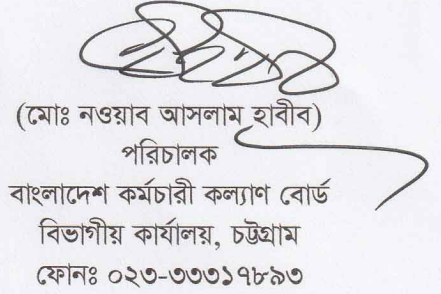 (মোঃ নওয়াব আসলাম হাবীব)
পরিচালক
বাংলাদেশ কর্মচারী কল্যাণ বোর্ড
বিভাগীয় কার্যালয়, চট্টগ্রাম
ফোনঃ ০২৩-৩৩৩১৭৮৯৩